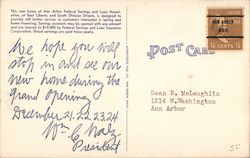 This new home of Ann Arbor Federal Savings and Loan Association, at East Liberty and South Division Streets, is designed to provide still better service to customers interested in saving and home financing. Savings accounts may be opened with any amount and are insured to $10,000 by Federal Savings and Loan Insurance Corporation. Good earnings are paid twice yearly.
We hope you will
stop in and see our
new home during the
Grand Opening
December 21.22.23.24
Wm C
President
POST CARD
ANN ARBOR
MICH.
1½ CENTS 1½
Dean B. McLaughlin
1214 W. Washington
Ann Arbor
5-